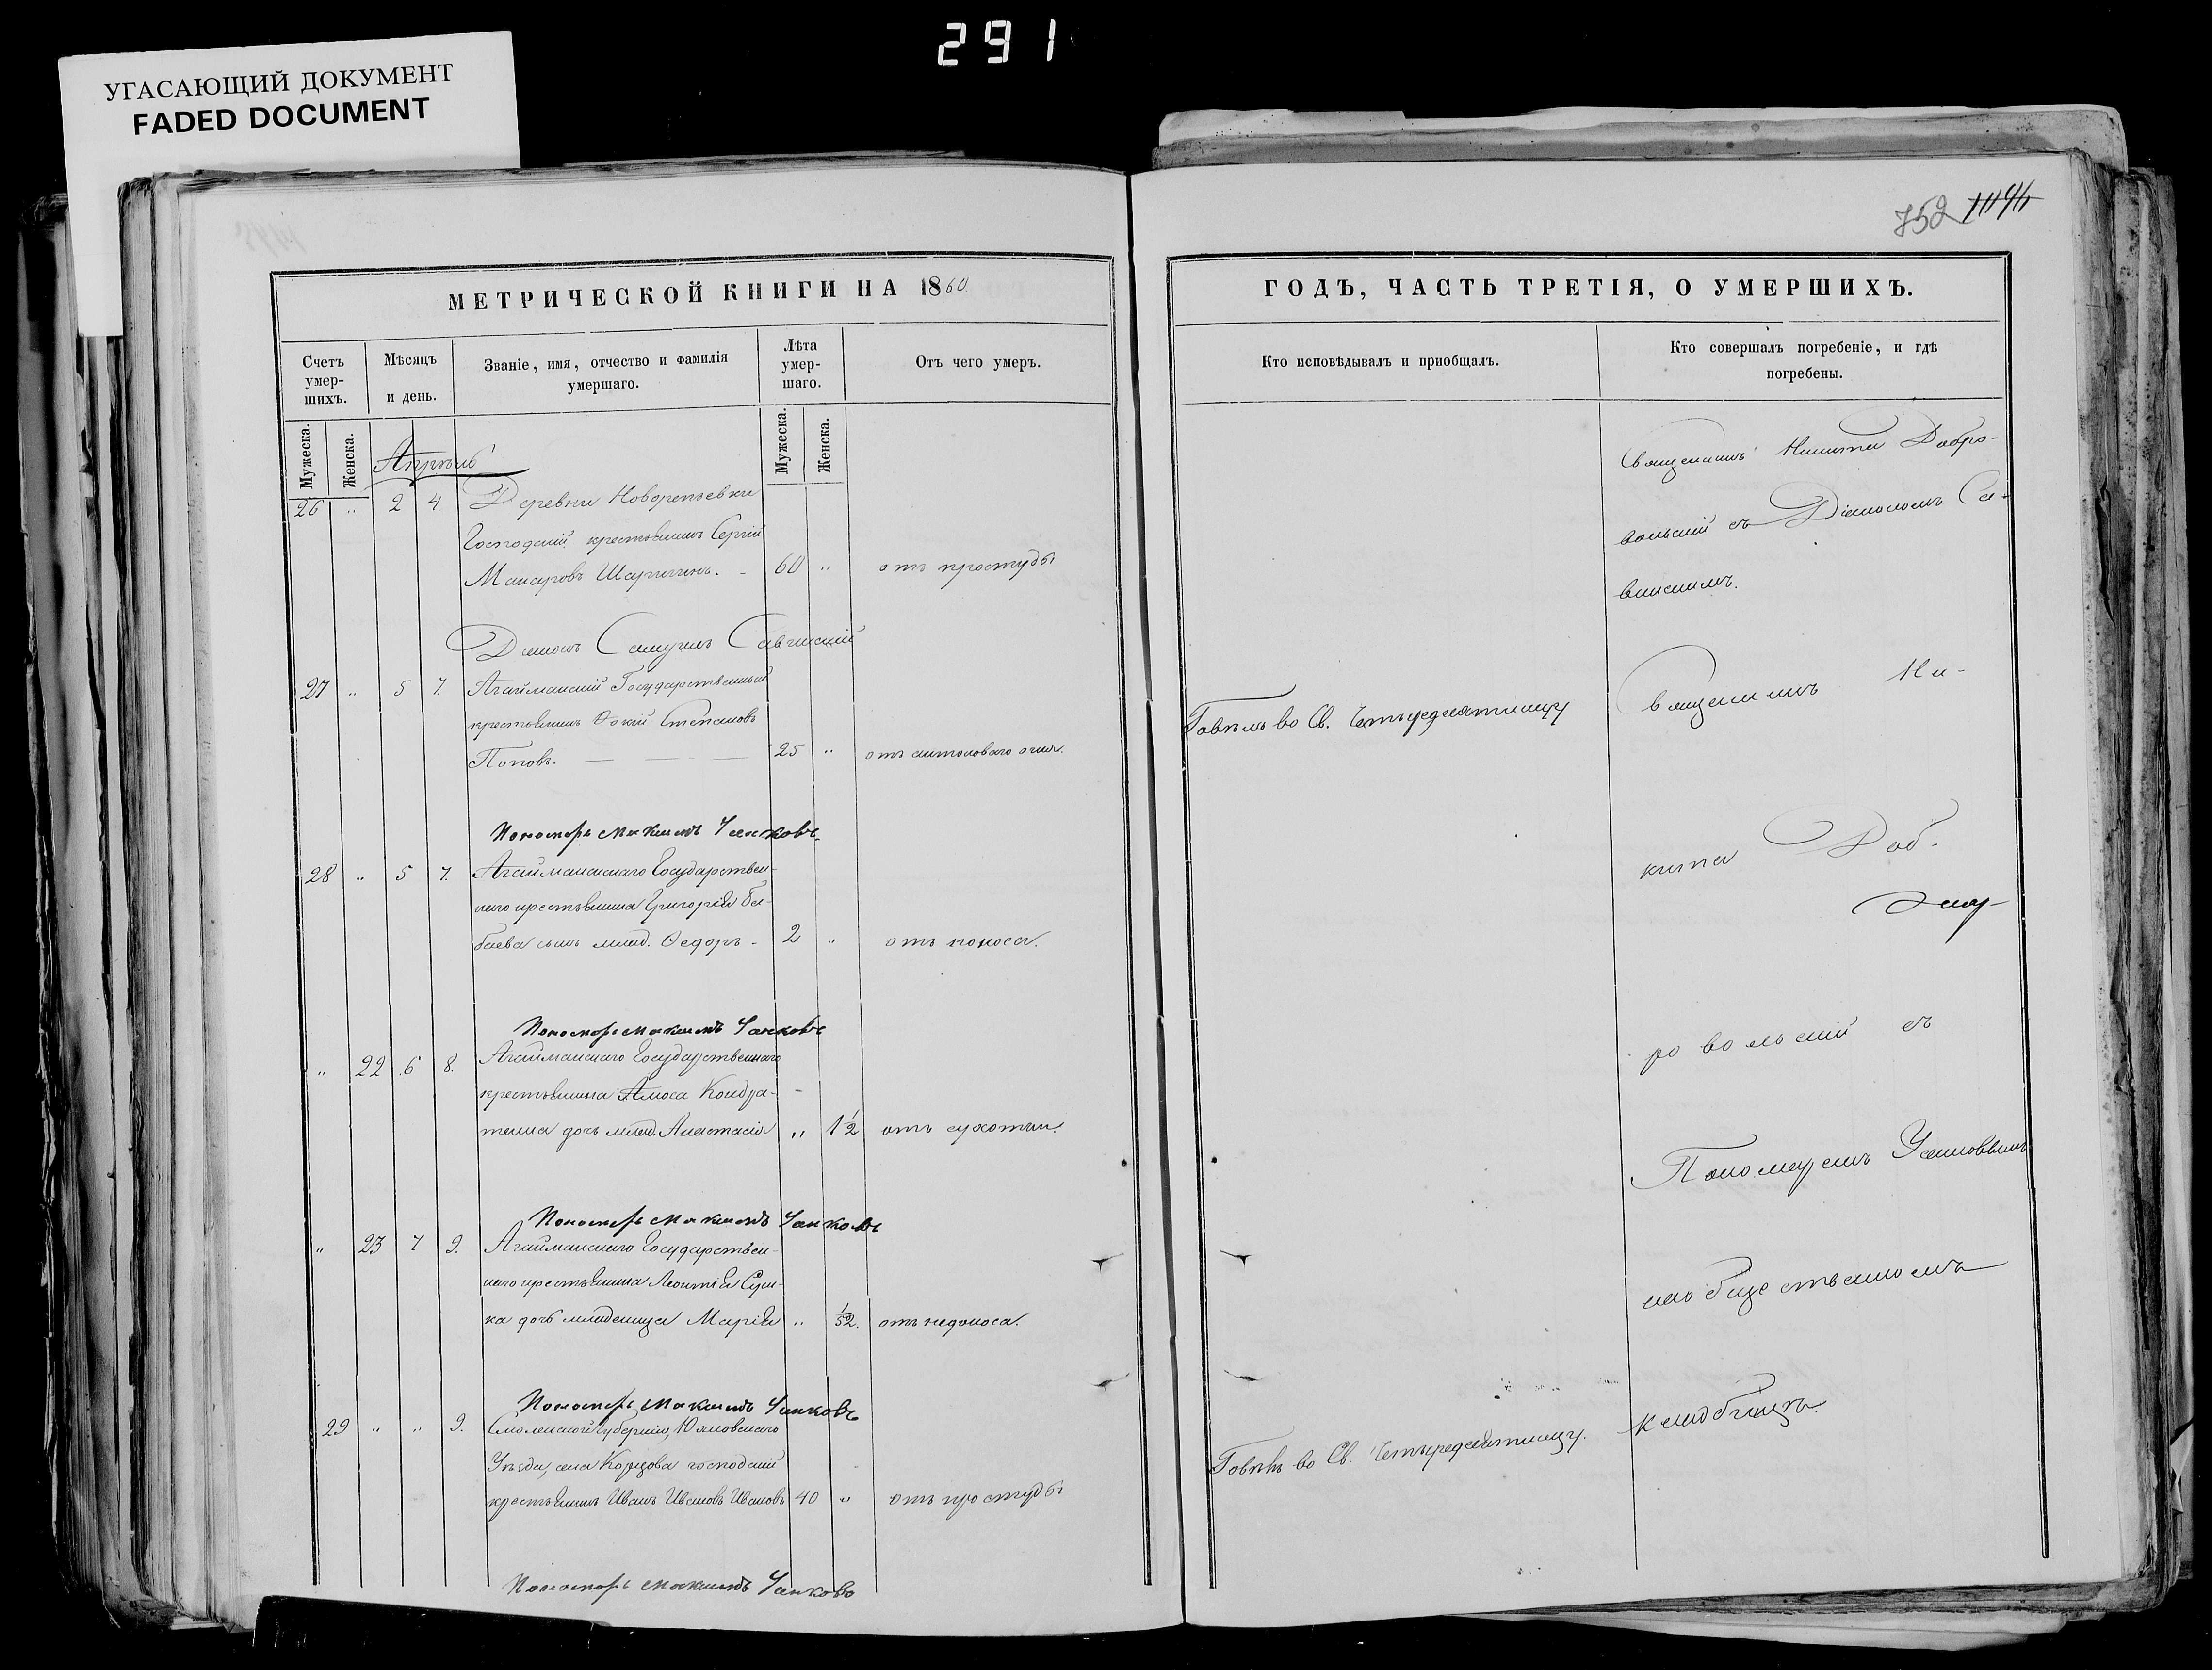 291
УГАСАЮЩИЙ ДОКУМЕНТ
FADED DOCUMENT
752
МЕТРИЧЕСКОЙ КНИГИ НА 1860
Счетъ умер-шихъ.
Мѣсяцъ и день.
Званіе, имя, отчество и фамилія умершаго.
Лѣта умер-шаго.
Отъ чего умеръ.
Мужеска.
Женска.
Мужеска.
Женска.
Апрѣль
26 „ 2 4. Деревни Новорепьевки
Господскій крестьянинъ Сергій
Макаровъ - 60 „ отъ простуды
Діаконъ Самуилъ Савинскій
27 „ 5 7. Агайманскій Государственный
крестьянинъ Фокій Степановъ
Поповъ. 25 „ отъ антоноваго огня.
Пономарь Максимъ
28 „ 5 7. Агайманскаго Государствен-
наго крестьянина Григорія Ба-
баева сынъ млад. Ѳедоръ - 2 „ отъ поноса.
Пономарь Максимъ
„ 22 6 8. Агайманскаго Государственнаго
крестьянина Амоса Кондра-
тенка дочь млад. Анастасія „ 1½ отъ сухотки.
Пономарь Максимъ
„ 23 7 9. Агайманскаго Государствен-
наго крестьянина Леонтія
ка дочь младеница Марія „ 1/52. отъ недоноса.
Пономарь Максимъ
29 „ „ 9. Смоленской Губерніи, Юхновскаго
Уѣзда, села господскій
крестьянинъ Иванъ Ивановъ Ивановъ 40 „ отъ простуды
Пономарь Максимъ
ГОДЪ, ЧАСТЬ ТРЕТІЯ, О УМЕРШИХЪ.
Кто исповѣдывалъ и приобщалъ.
Кто совершалъ погребеніе, и гдѣ погребены.
Говѣлъ во Св. Четыредесятницу
Говѣлъ во Св. Четыредесятницу.
Священникъ Никита Добро-
вольскій съ Діакономъ Са-
винскимъ.
Священникъ Ни-
кита Доб-
ровольскій съ
Пономаремъ
на общественномъ
кладбищѣ.